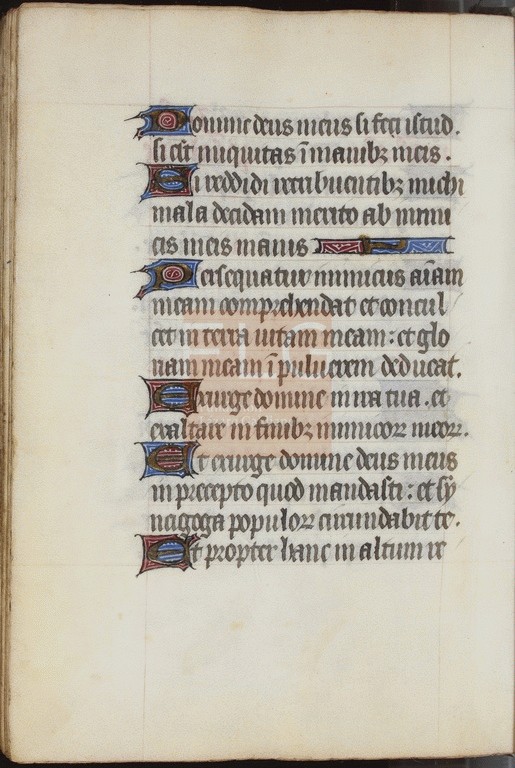 Domine deus meus si feci istud.
si est iniquitas ī manibꝫ meis.
Si reddidi retribuentibꝫ michi
mala decidam merito ab inimi
cis meis inanis
Persequatur inimicus aīam
meam comprehendat et concul
cet in terra uitam meam: et glo
riam meam ī puluerem deducat.
Exurge domine in ira tua. et
exaltare in finibꝫ inimicoꝝ meoꝝ.
Et exurge domine deus meus
in precepto quod mandasti: et sy
nagoga populoꝝ circundabit te.
Et propter hanc in altum re